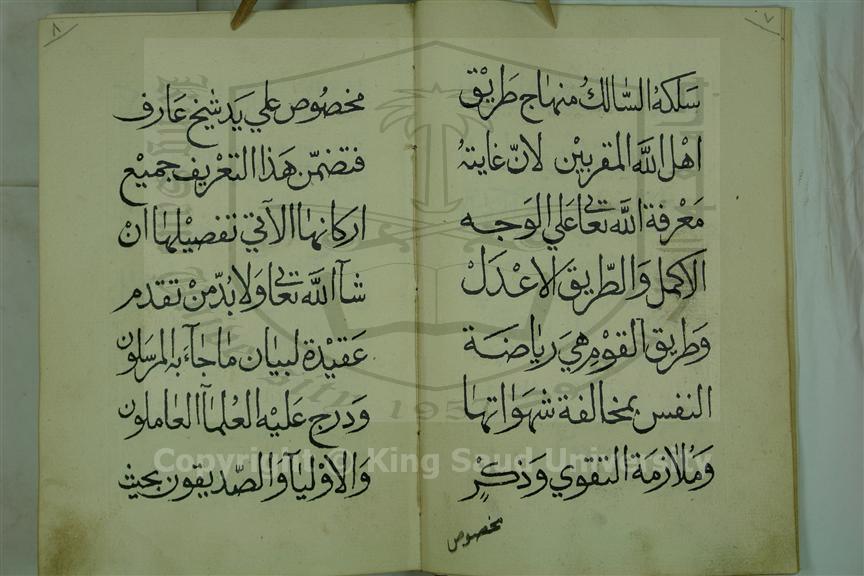 ٧
سَلكهُ السَّالكُ منهاج طَريْق
اهْل اللّٰه المقربيْن لانّ غايتهُ
مَعْرفة اللّٰه تعالى عَلي الوَجه
الاكمل وَالطّريق الاعْدَلْ
وَطريق القوْم هيَ رياضَة
النفس بمخالفة شهوَاتها
وَمُلازمَة التقوي وَذكرٍ
مخصوص
٨
مخصُوص علي يَد شيْخ عَارف
فتضمّن هَذا التعْريف جميْع
اركانها الآتي تفصيْلها انْ
شآ اللّٰه تعالى وَلابُدّ منْ تقدم
عَقيْدة لبيَان مَا جَآء به المرسَلون
وَدرج عَليْه العُلمآ العَاملون
وَالاوْليآ وَالصّديقون بحيث
Copyright © King Saud University
1957